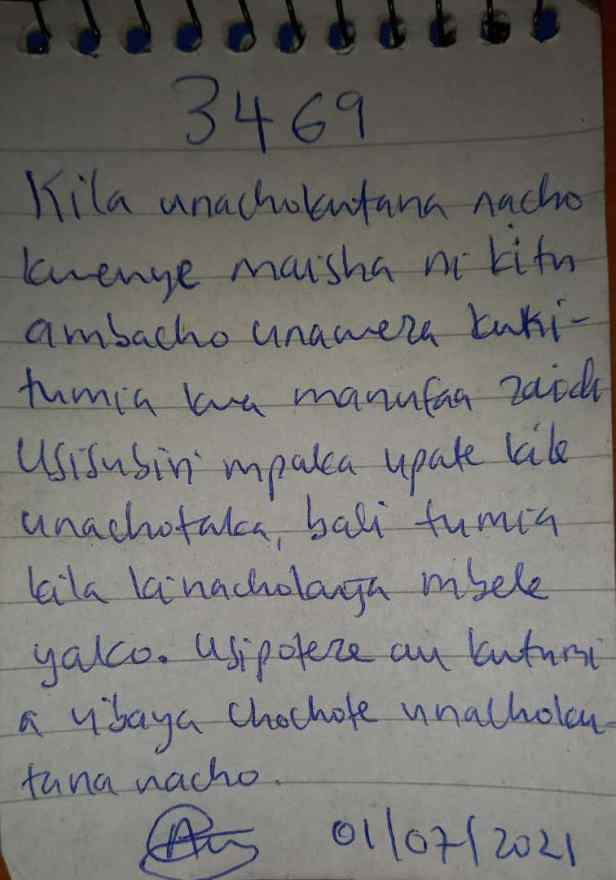 3469
Kila unachokutana nacho
kwenye maisha ni kitu
ambacho unaweza kuki-
tumia kwa manufaa zaidi
Usisubiri mpaka upate kile
unachotaka, bali tumia
kila kinachokuja mbele
yako. Usipoteze au kutumi
a vibaya chochote unachoku-
tana nacho.
01/07/2021